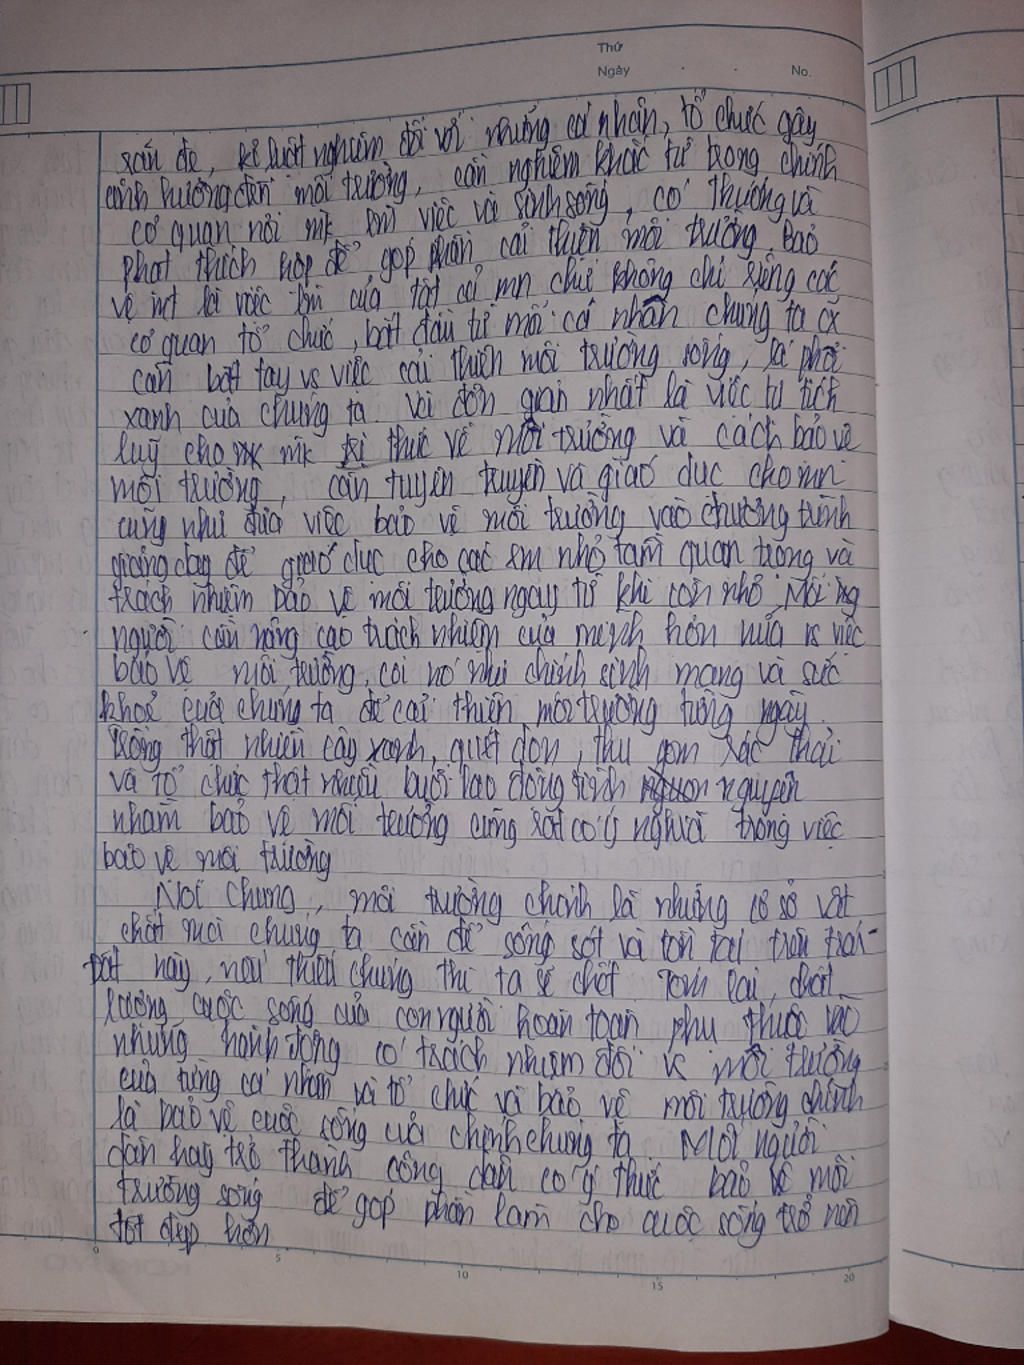 Thứ
Ngày . . No.
răn đe, kỉ luật nghiêm đối với những cá nhân, tổ chức gây
ảnh hưởng đến môi trường, cần nghiêm khắc từ trong chính
cơ quan nơi mk làm việc và sinh sống, có thưởng và
phạt thích hợp để góp phần cải thiện môi trường. Bảo
vệ mt là việc làm của tất cả mn chứ không chỉ riêng các
cơ quan tổ chức, bắt đầu từ mỗi cá nhân chúng ta
cần bắt tay vs việc cải thiện môi trường sống, lá phổi
xanh của chúng ta và đơn giản nhất là việc tự tích
luỹ cho mk tri thức về môi trường và cách bảo vệ
môi trường, cần tuyên truyền và giáo dục cho mn
cũng như đưa việc bảo vệ môi trường vào chương trình
giảng dạy để giáo dục cho các em nhỏ tầm quan trọng và
trách nhiệm bảo vệ môi trường ngay từ khi còn nhỏ. Mỗi ng
người cần nâng cao trách nhiệm của mình hơn nữa vs việc
bảo vệ môi trường, coi nó như chính sinh mạng và sức
khoẻ của chúng ta để cải thiện môi trường từng ngày.
Trồng thật nhiều cây xanh, quét dọn, thu gom rác thải
và tổ chức thật nhiều buổi lao động tình nguyện
nhằm bảo vệ môi trường cũng rất có ý nghĩa trong việc
bảo vệ môi trường
Nói chung, môi trường chính là những cơ sở vật
chất mà chúng ta cần để sống sót và tồn tại trên trái
đất này, nếu thiếu chúng thì ta sẽ chết. Tóm lại, chất
lượng cuộc sống của con người hoàn toàn phụ thuộc vào
những hành động có trách nhiệm đối vs môi trường
của từng cá nhân và tổ chức và bảo vệ môi trường chính
là bảo vệ cuộc sống của chính chúng ta. Mỗi người
dân hãy trở thành công dân có ý thức bảo vệ môi
trường sống để góp phần làm cho cuộc sống trở nên
tốt đẹp hơn
0 5 10 15 20